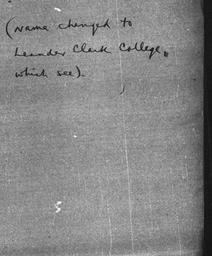 (Name changed to
Leander Clark College,
which see).